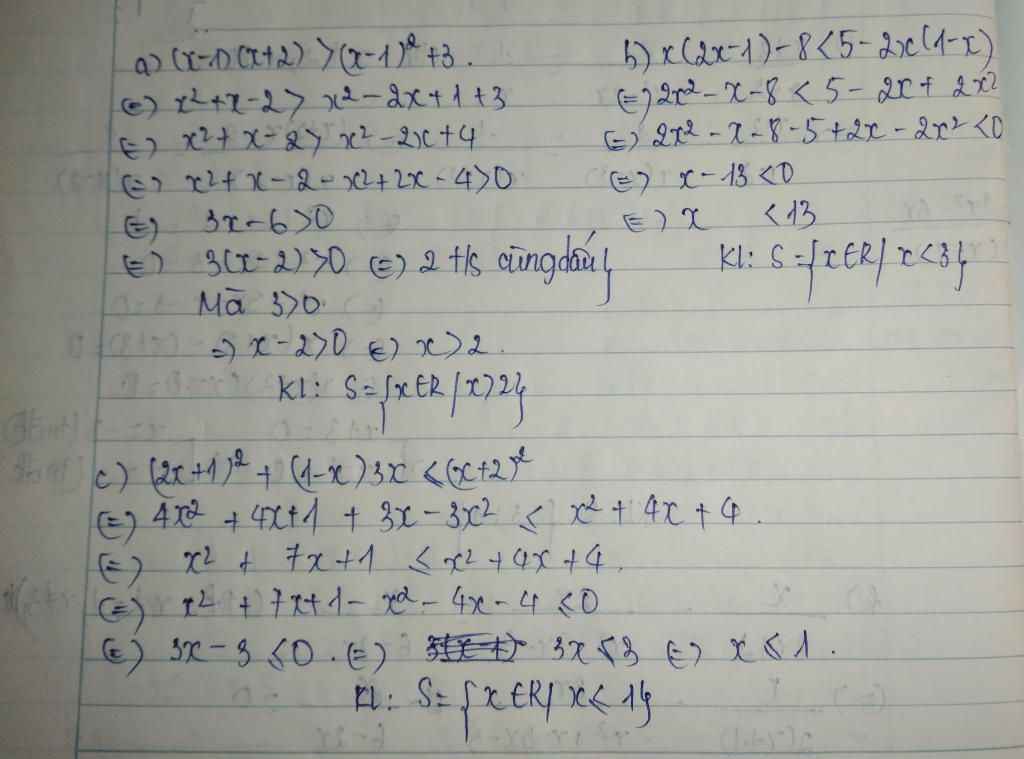 a) (x-1)(x+2) > (x-1)² + 3.
(=) x² + x - 2 > x² - 2x + 1 + 3
(=) x² + x - 2 > x² - 2x + 4
(=) x² + x - 2 - x² + 2x - 4 > 0
(=) 3x - 6 > 0
(=) 3(x-2) > 0 (=) 2 t/s cùng dấu
Mà 3 > 0.
=) x - 2 > 0 (=) x > 2.
Kl: S = {x ∈ R / x > 2}
b) x(2x-1) - 8 < 5 - 2x(1-x)
(=) 2x² - x - 8 < 5 - 2x + 2x²
(=) 2x² - x - 8 - 5 + 2x - 2x² < 0
(=) x - 13 < 0
(=) x < 13
Kl: S = {x ∈ R / x < 3}
c) (2x+1)² + (1-x)3x ≤ (x+2)²
(=) 4x² + 4x + 1 + 3x - 3x² ≤ x² + 4x + 4.
(=) x² + 7x + 1 ≤ x² + 4x + 4.
(=) x² + 7x + 1 - x² - 4x - 4 ≤ 0
(=) 3x - 3 ≤ 0. (=) 3x ≤ 3 (=) x ≤ 1.
Kl: S = {x ∈ R / x ≤ 1}